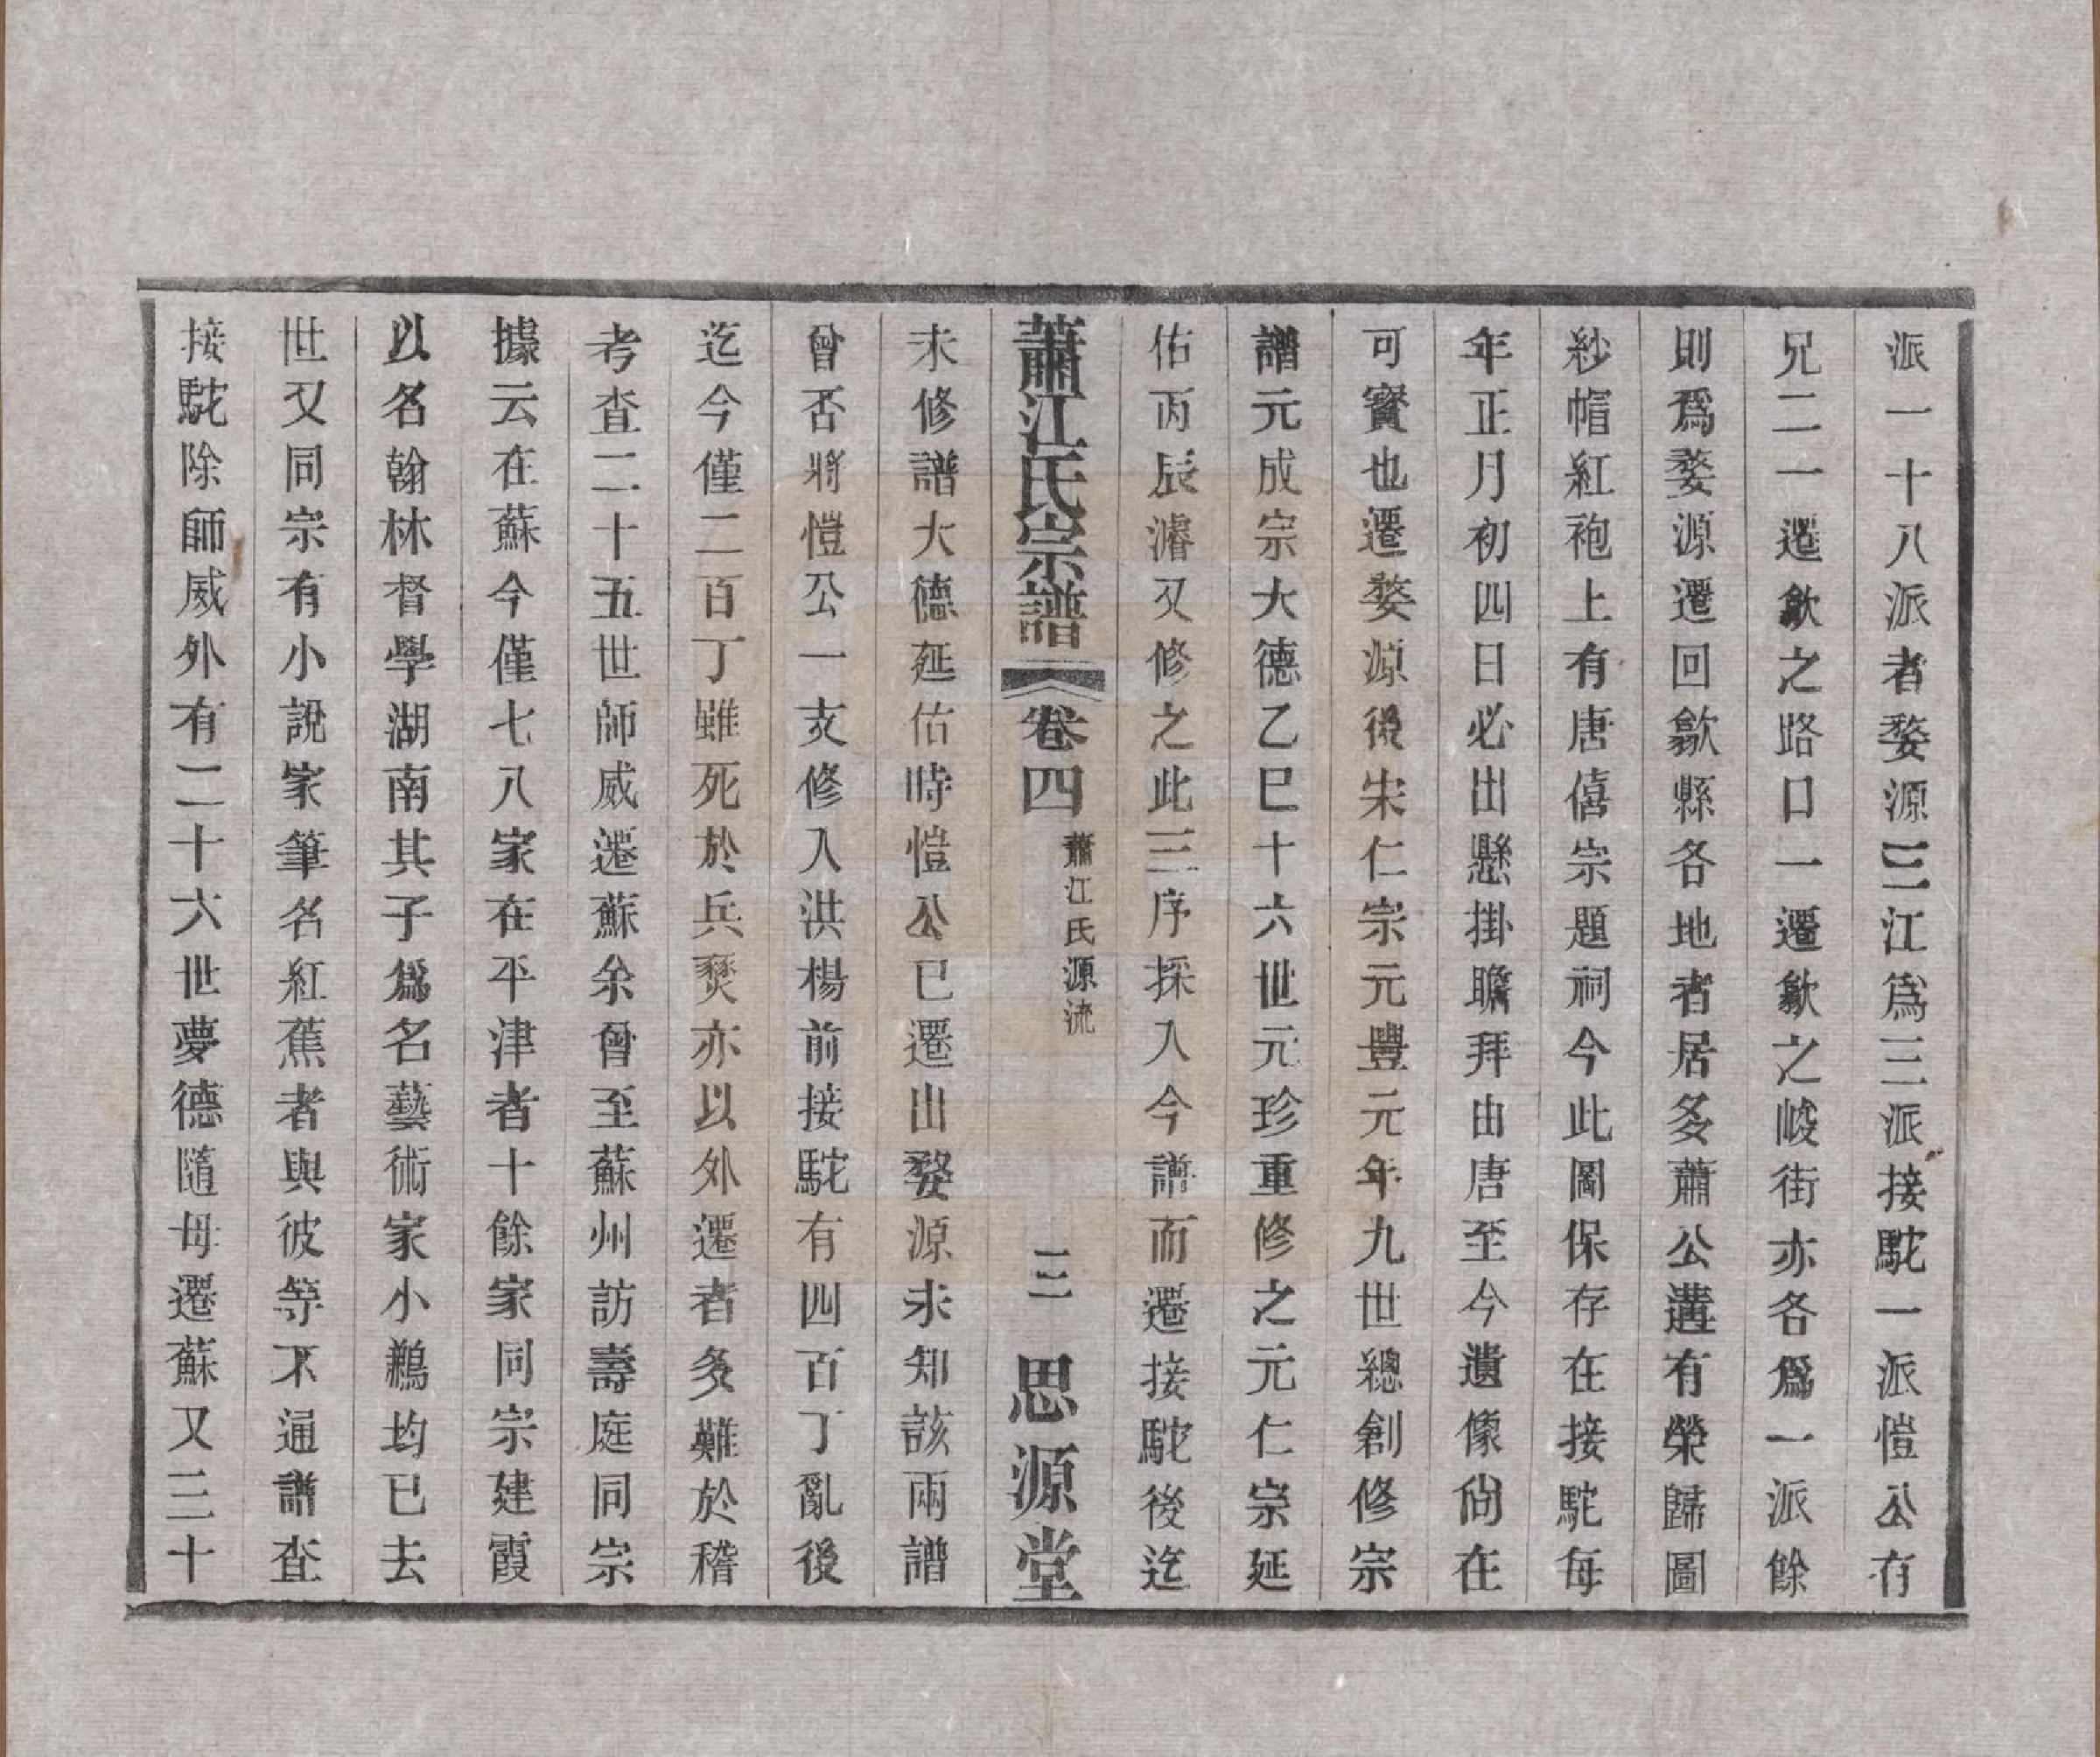 派一十八派者婺源三江爲三派接駝一派愷公有
兄二一遷歙之路口一遷歙之㟙街亦各爲一派餘
則爲婺源遷回歙縣各地者居多蕭公遘有榮歸圖
紗帽紅袍上有唐僖宗題祠今此圖保存在接駝每
年正月初四日必出懸掛瞻拜由唐至今遺像尙在
可寳也遷婺源後宋仁宗元豐元年九世總創修宗
譜元成宗大德乙巳十六世元珍重修之元仁宗延
佑丙辰濬又修之此三序採入今譜而遷接駝後迄
蕭江氏宗譜 卷四 蕭江氏源流 三 思源堂
未修譜大德延佑時愷公已遷出婺源未知該兩譜
曾否將愷公一支修入洪楊前接駝有四百丁亂後
迄今僅二百丁雖死於兵燹亦以外遷者多難於稽
考查二十五世師威遷蘇余曾至蘇州訪壽庭同宗
據云在蘇今僅七八家在平津者十餘家同宗建霞
以名翰林督學湖南其子爲名藝術家小鶼均已去
世又同宗有小說家筆名紅蕉者與彼等不通譜查
接駝除師威外有二十六世夢德隨母遷蘇又三十